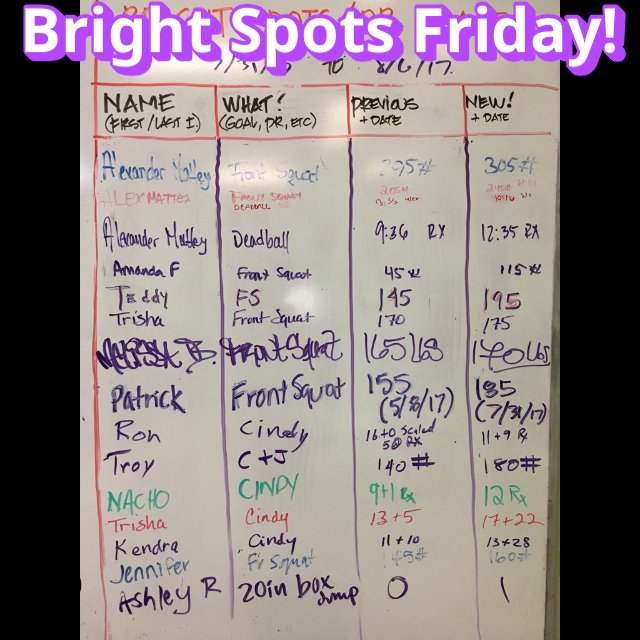 Bright Spots Friday!
TO 8/6/17.
NAME WHAT? PREVIOUS NEW!
(FIRST/LAST I) (GOAL, PR, ETC) + DATE + DATE
Alexander Front Squat 295# 305#
ALEX MATTEY FRONT SQUAT
DEADBALL 13:35
Alexander Deadball 9:36 RX 12:35 RX
Amanda F Front Squat 45# 115#
Teddy FS 145 195
Trisha Front Squat 170 175
Front Squat 165 lbs 170 lbs
Patrick Front Squat 155 185
(5/8/17) (7/31/17)
Ron Cindy 16+0 Scaled 11+9 Rx
5@Rx
Troy C+J 140# 180#
NACHO CINDY 9+1 Rx 12 Rx
Trisha Cindy 13+5 17+22
Kendra Cindy 11+10 13+28
Jennifer Fr Squat 145# 160#
Ashley R 20in box jump 0 1